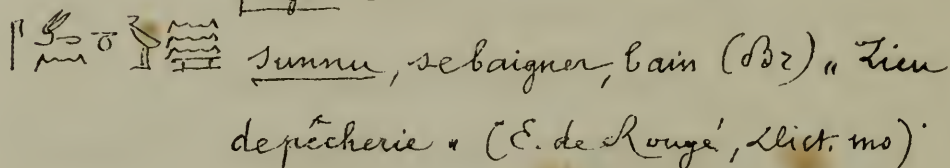 sunnu, se baigner, bain (Br) „ Lieu
de pêcherie „ (E. de Rougé, Dict. mo)